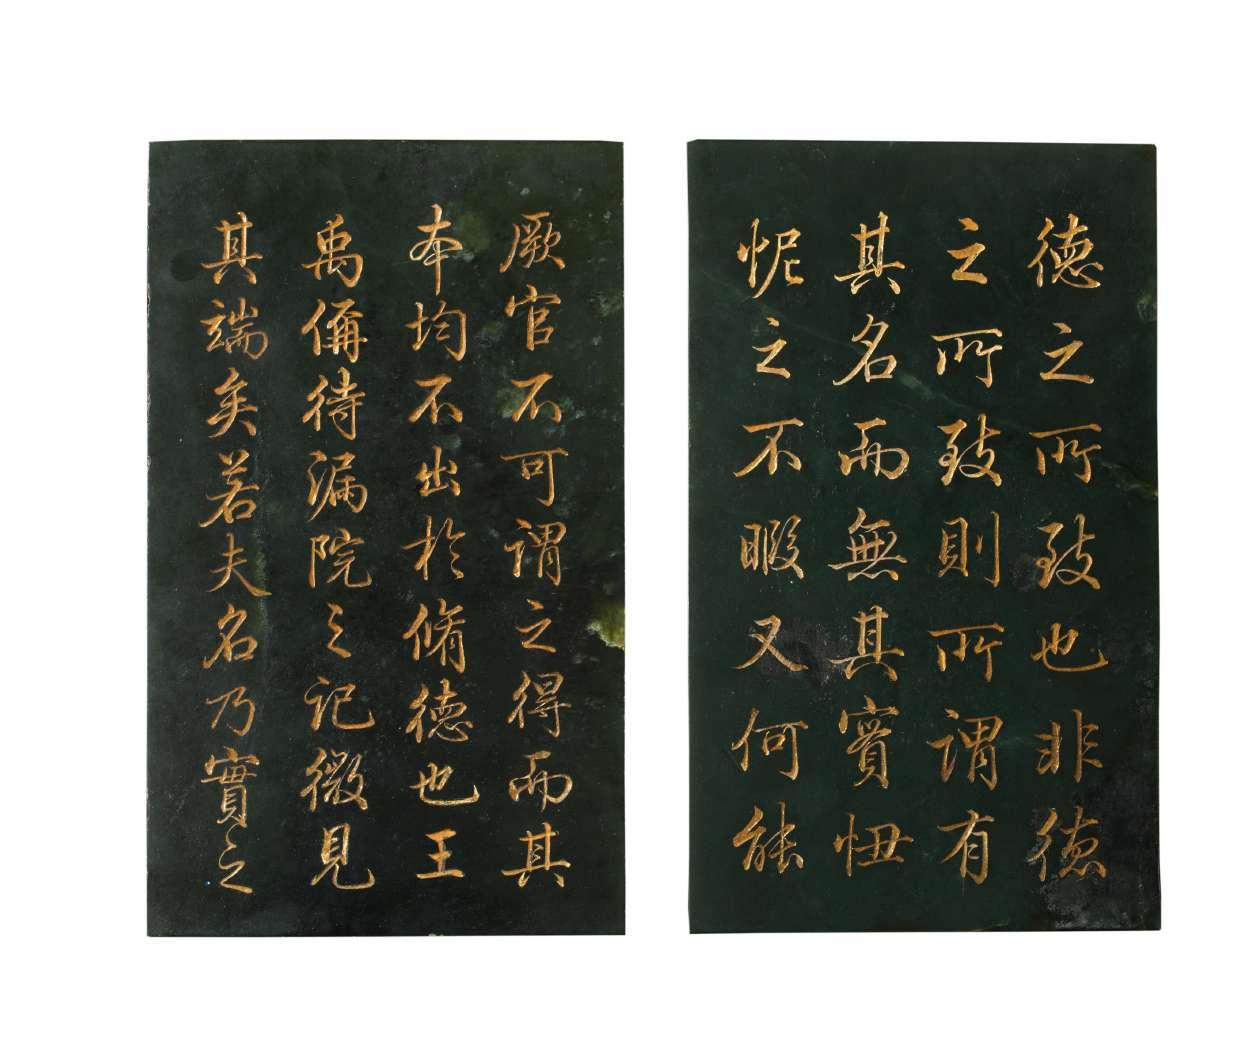 德之所致也非德
之所致則所謂有
其名而無其實忸
怩之不暇又何能
厥官不可謂之得而其
本均不出於脩德也王
禹偁待漏院之記微見
其端矣若夫名乃實之